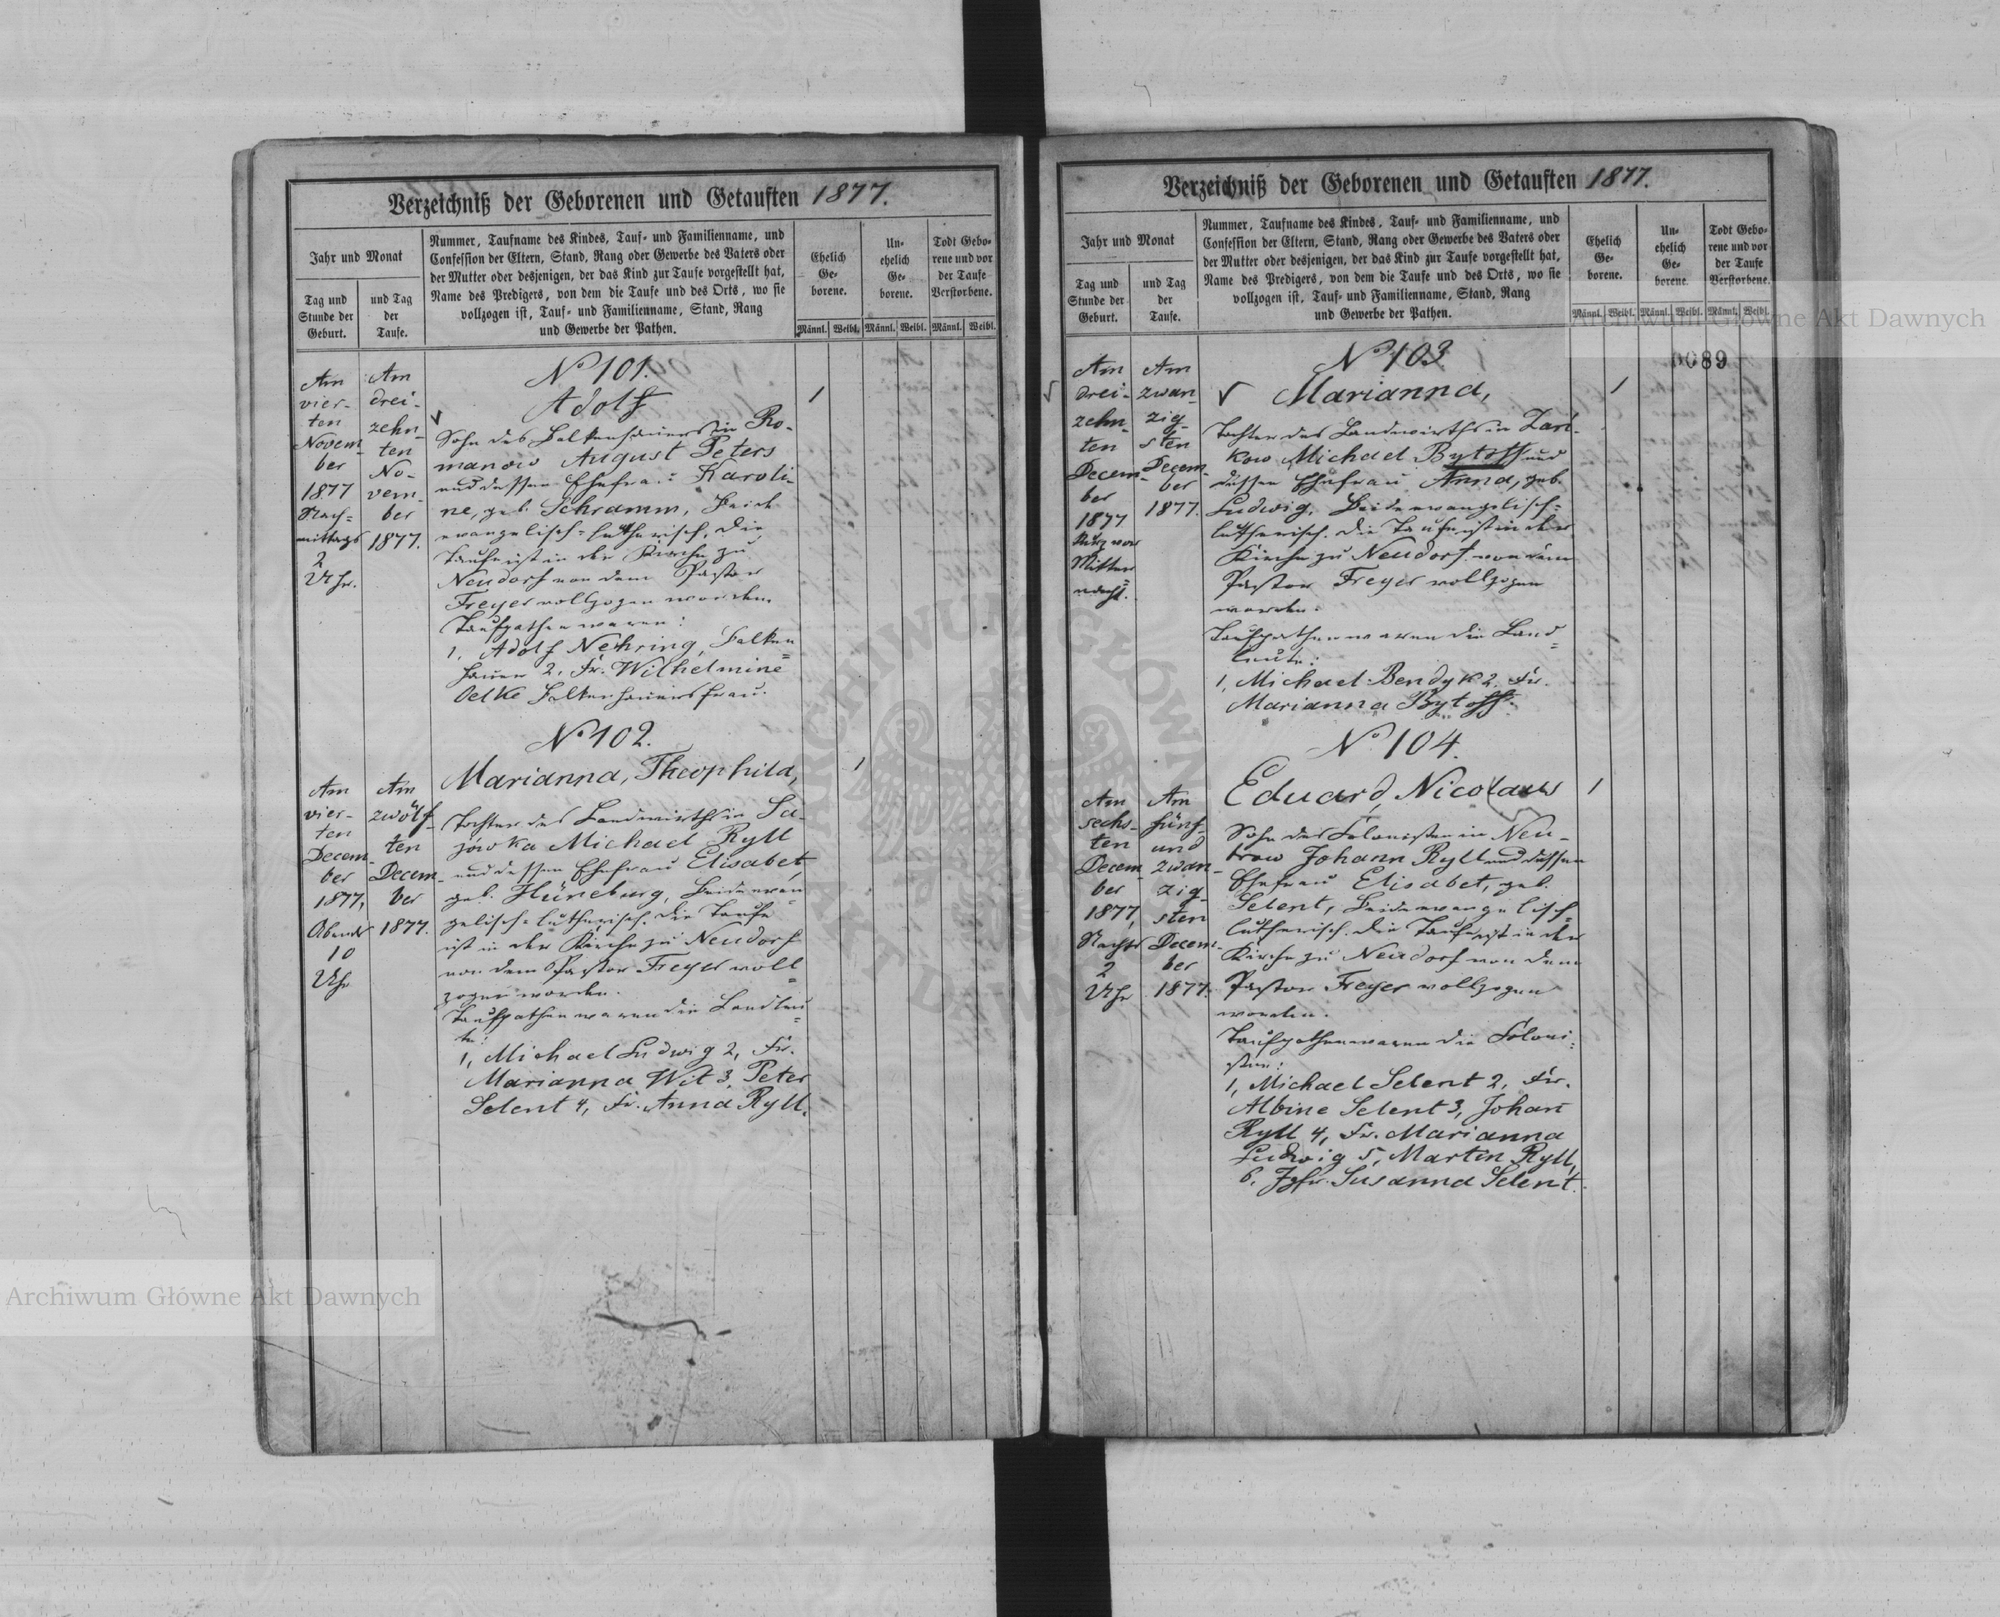 Verzeichniß der Geborenen und Getauften 1877.
Jahr und Monat
Tag und
Stunde der
Geburt.
und Tag
der
Taufe.
Nummer, Taufname des Kindes, Tauf- und Familienname, und
Confession der Eltern, Stand, Rang oder Gewerbe des Vaters oder
der Mutter oder desjenigen, der das Kind zur Taufe vorgestellt hat,
Name des Predigers, von dem die Taufe und des Orts, wo sie
vollzogen ist, Tauf- und Familienname, Stand, Rang
und Gewerbe der Pathen.
Ehelich
Ge-
borene.
Un-
ehelich
Ge-
borene.
Todt Gebo-
rene und vor
der Taufe
Verstorbene.
Männl. Weibl. Männl. Weibl. Männl. Weibl.
Am
vier-
ten
Novem-
ber
1877
Nach-
mittags
2
Uhr.
Am
drei-
zehn-
ten
No-
vem-
ber
1877.
No 101.
Adolf
Sohn des Balkenhauers in Ro-
manow August Peters
und dessen Ehefrau Karoli-
ne, geb. Schramm, Beide
evangelisch-lutherisch, die
Taufe ist in der Kirche zu
Neudorf von dem Pastor
Freyer vollzogen worden.
Taufpathen waren:
1, Adolf Nehring, Balken=
hauer 2, Fr. Wilhelmine
Oelke Balkenhauersfrau.
1
Am
vier-
ten
Decem-
ber
1877,
Abends
10
Uhr
Am
zwölf-
ten
Decem-
ber
1877.
No 102.
Marianna, Theophila,
Tochter des Landwirths in Sa-
jówka Michael Ryll
und dessen Ehefrau Elisabet,
geb. Hüneburg, Beide evan=
gelisch-lutherisch. Die Taufe
ist in der Kirche zu Neudorf
von dem Pastor Freyer voll=
zogen worden.
Taufpathen waren die Landleu=
te:
1, Michael Ludwig 2, Fr.
Marianna Wit 3, Peter
Selent 4, Fr. Anna Ryll.
1
Verzeichniß der Geborenen und Getauften 1877.
Jahr und Monat
Tag und
Stunde der
Geburt.
und Tag
der
Taufe.
Nummer, Taufname des Kindes, Tauf- und Familienname, und
Confession der Eltern, Stand, Rang oder Gewerbe des Vaters oder
der Mutter oder desjenigen, der das Kind zur Taufe vorgestellt hat,
Name des Predigers, von dem die Taufe und des Orts, wo sie
vollzogen ist, Tauf- und Familienname, Stand, Rang
und Gewerbe der Pathen.
Ehelich
Ge-
borene.
Un-
ehelich
Ge-
borene.
Todt Gebo-
rene und vor
der Taufe
Verstorbene.
Männl. Weibl. Männl. Weibl. Männl. Weibl.
0089
Am
drei-
zehn-
ten
Decem-
ber
1877
kurz vor
Mitter=
nacht.
Am
zwan-
zig-
sten
Decem-
ber
1877.
No 103
Marianna,
Tochter des Landwirths in Zari-
kow Michael Bytoff und
dessen Ehefrau Anna, geb.
Ludwig, Beide evangelisch=
lutherisch. Die Taufe ist in der
Kirche zu Neudorf von dem
Pastor Freyer vollzogen
worden.
Taufpathen waren die Land=
leute:
1, Michael Bendyk 2, Fr.
Marianna Bytoff.
1
Am
sechs-
ten
Decem-
ber
1877,
Nachts
2
Uhr
Am
fünf-
und
zwan-
zig-
sten
Decem-
ber
1877.
No 104.
Eduard, Nicolaus
Sohn des Colonisten in Neu-
brow Johann Ryll und dessen
Ehefrau Elisabet, geb.
Selent, Beide evangelisch=
lutherisch. Die Taufe ist in der
Kirche zu Neudorf von dem
Pastor Freyer vollzogen
worden.
Taufpathen waren die Coloni=
sten:
1, Michael Selent 2, Fr.
Albine Selent 3, Johan
Ryll 4, Fr. Marianna
Ludwig 5, Martin Ryll,
6, Jgfr. Susanna Selent.
1
Archiwum Główne Akt Dawnych
Archiwum Główne Akt Dawnych